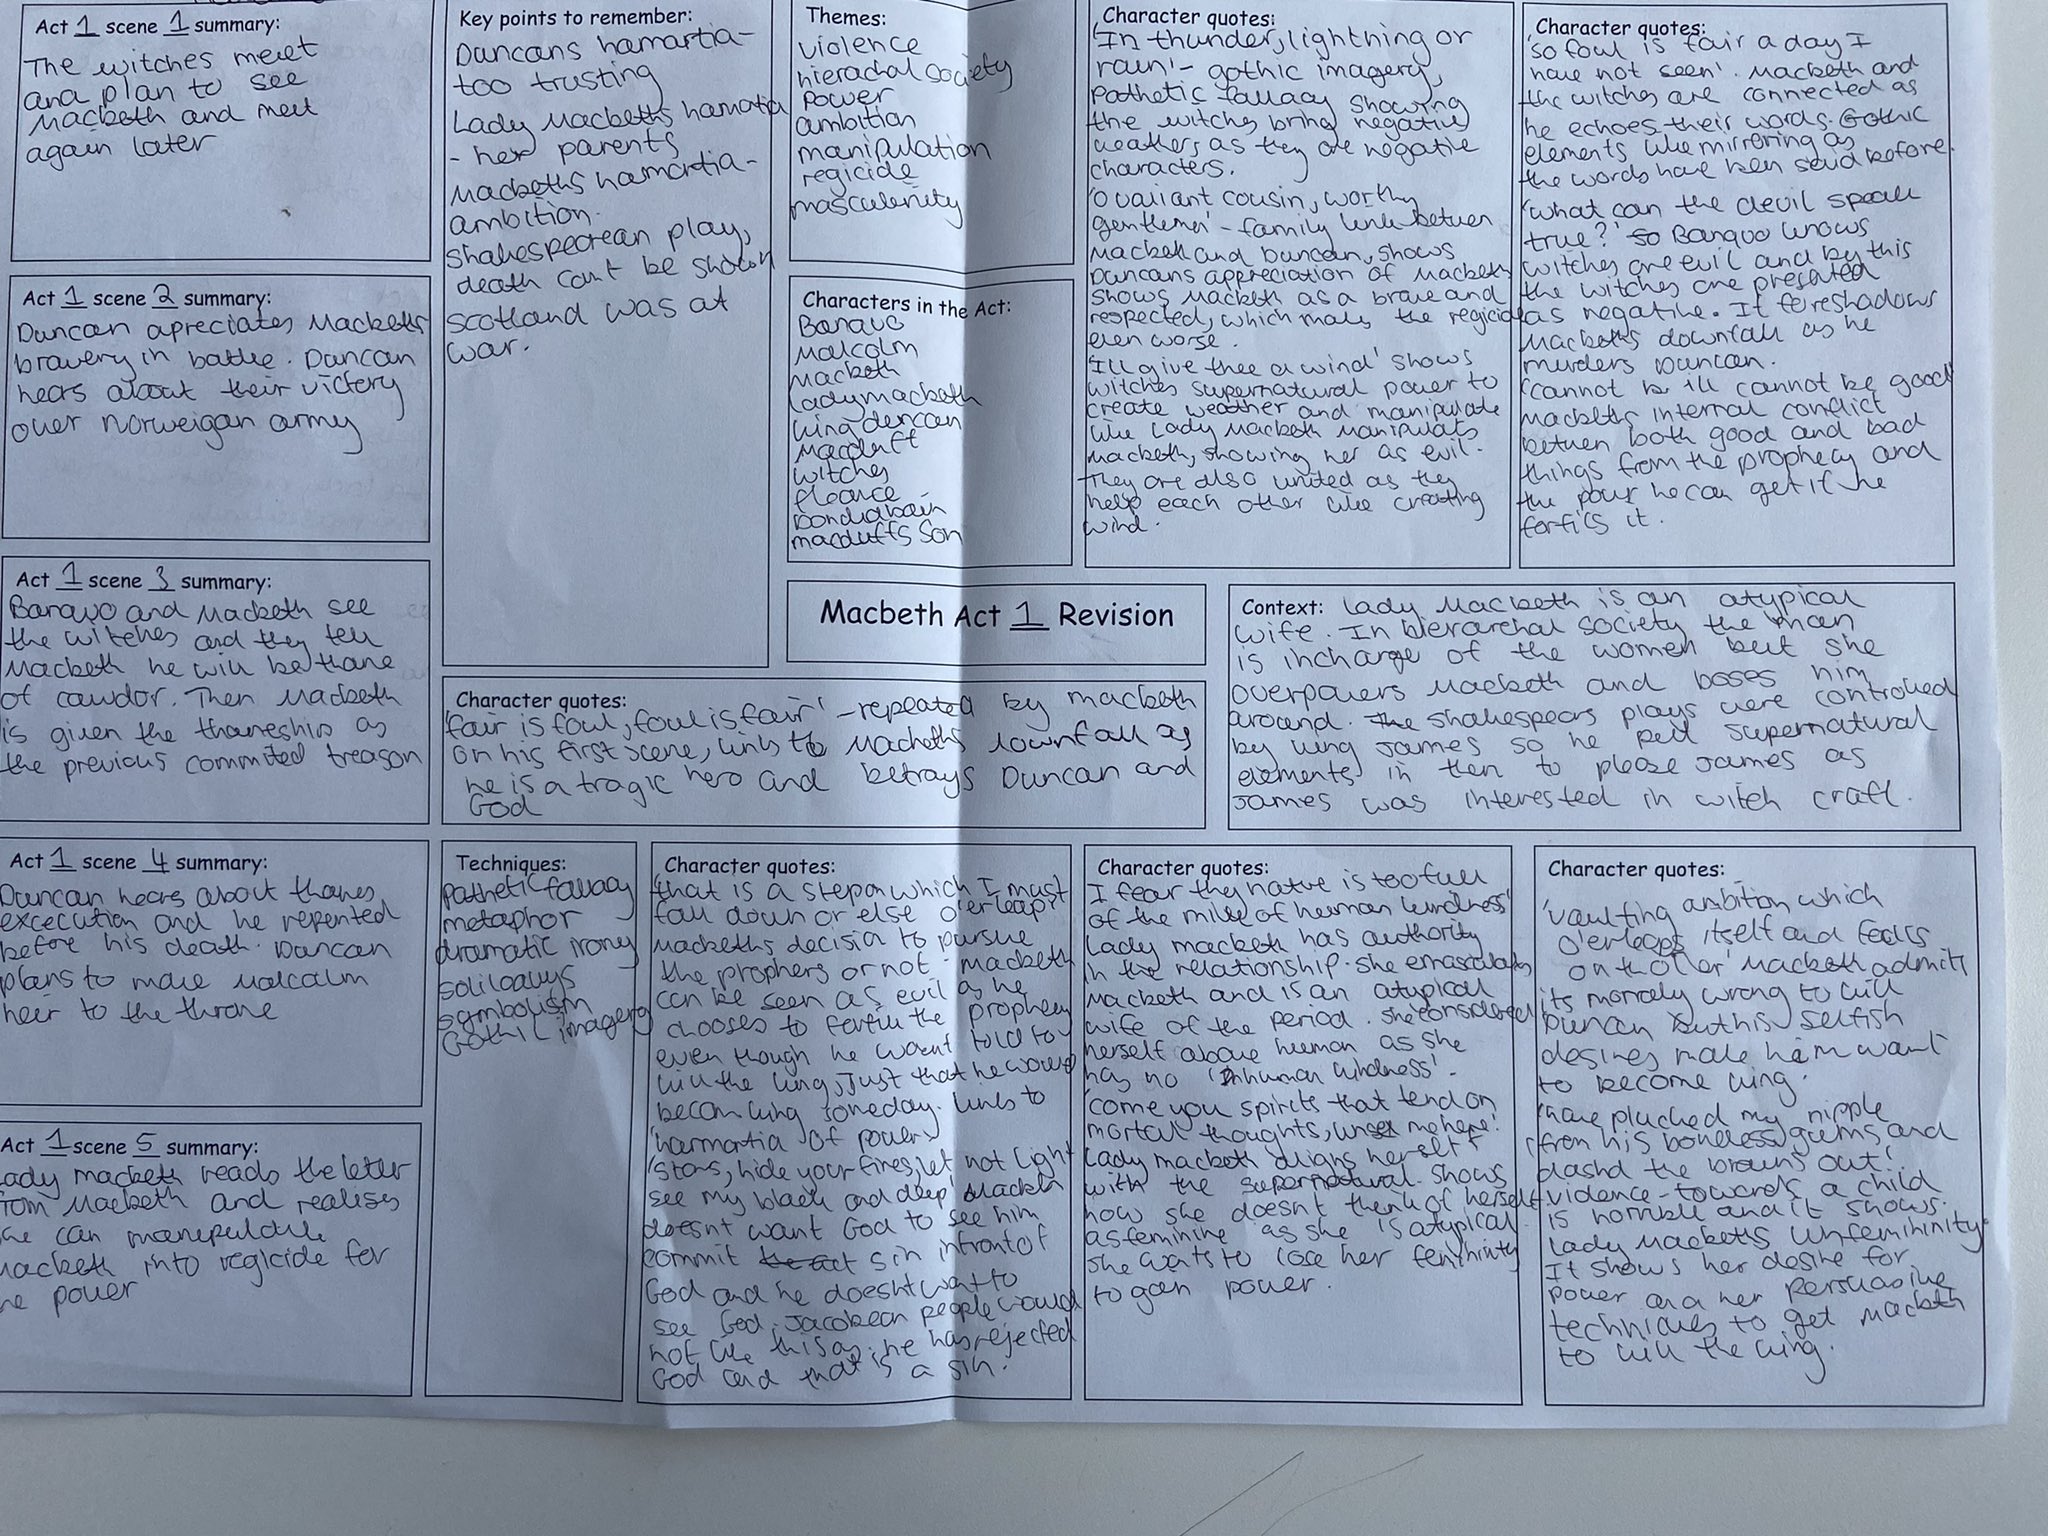 Act 1 scene 1 summary:
The witches meet
and plan to see
Macbeth and meet
again later
Act 1 scene 2 summary:
Duncan apreciates Macbeths
bravery in battle. Duncan
hears about their victory
over norweigan army
Act 1 scene 3 summary:
Banquo and Macbeth see
the witches and they tell
Macbeth he will be thane
of cawdor. Then Macbeth
is given the thaneship as
the previous commited treason
Act 1 scene 4 summary:
Duncan hears about thanes
excecution and he repented
before his death. Duncan
plans to make Malcalm
heir to the throne
Act 1 scene 5 summary:
Lady macbeth reads the letter
from Macbeth and realises
she can manipulate
Macbeth into regicide for
power
Key points to remember:
Duncans hamartia-
too trusting
Lady Macbeths hamartia
- her parents
Macbeths hamartia-
ambition.
Shakespearean play,
death cant be shown
Scotland was at
war.
Themes:
violence
hierachal society
power
ambition
manipulation
regicide
masculinity
Characters in the Act:
Banquo
Malcolm
Macbeth
Lady macbeth
king duncan
Macduff
witches
fleance
Dondlabain
macduffs son
Character quotes:
'In thunder, lightning or
rain' - gothic imagery,
Pathetic fallacy showing
the witches bring negative
weathers as they are negative
characters.
'O valiant cousin, worthy
gentlemen' - family link between
Macbeth and Duncan, shows
Duncans appreciation of Macbeth
shows Macbeth as a brave and
respected, which makes the regicide
even worse.
'I'll give thee a wind' shows
witches supernatural power to
create weather and manipulate
like Lady Macbeth manipulats
Macbeth, showing her as evil.
They are also united as they
help each other like creating
wind.
Character quotes:
'so foul is fair a day I
have not seen'. Macbeth and
the witches are connected as
he echoes their words. Gothic
elements like mirroring as
the words have been said before.
'what can the devil speak
true?' so Banquo knows
witches are evil and by this
the witches are presented
as negative. It foreshadows
Macbeths downfall as he
murders Duncan.
'cannot be ill cannot be good'
Macbeths internal conflict
between both good and bad
things from the prophecy and
the power he can get if he
forfils it.
Macbeth Act 1 Revision
Context: Lady Macbeth is an atypical
wife. In hierarchal society the man
is incharge of the women but she
overpowers Macbeth and bosses him
around. The shakespears plays were controlled
by king James so he put supernatural
elements in then to please James as
James was interested in witch craft.
Character quotes:
'fair is foul, foul is fair' - repeated by macbeth
on his first scene, links to Macbeths downfall as
he is a tragic hero and betrays Duncan and
God
Techniques:
Pathetic fallacy
metaphor
dramatic irony
soliloquys
symbolism
Gothic imagery
Character quotes:
'that is a step on which I must
fall down or else o'erleap'
Macbeths decision to pursue
the prophecy or not. Macbeth
can be seen as evil as he
chooses to forfill the prophecy
even though he wasnt told to
kill the king, just that he would
become king someday. links to
hamartia of power.
'stars, hide your fires, let not light
see my black and deep' Macbeth
doesnt want God to see him
commit the act sin infront of
God and he doesnt want to
see God. Jacobean people would
not like this as he has rejected
God and that is a sin.
Character quotes:
I fear thy nature is too full
of the milk of human kindness'
Lady macbeth has authority
in the relationship. She emasculates
Macbeth and is an atypical
wife of the period. She considered
herself above human as she
has no 'inhuman kindness'.
'come you spirits that tend on
mortal thoughts, unsex me here'
Lady macbeth aligns herself
with the supernatural. Shows
how she doesn't think of herself
as feminine as she is atypical.
She wants to lose her femininity
to gain power.
Character quotes:
'vaulting ambition which
o'erleaps itself and falls
on thother' Macbeth admits
its morraly wrong to kill
Duncan but his selfish
desires make him want
to become king.
'have plucked my nipple
from his boneless gums and
dashd the brains out'
violence towards a child
is horrible and it shows
Lady Macbeths unfemininity.
It shows her desire for
power and her persuasive
techniques to get Macbeth
to kill the king.